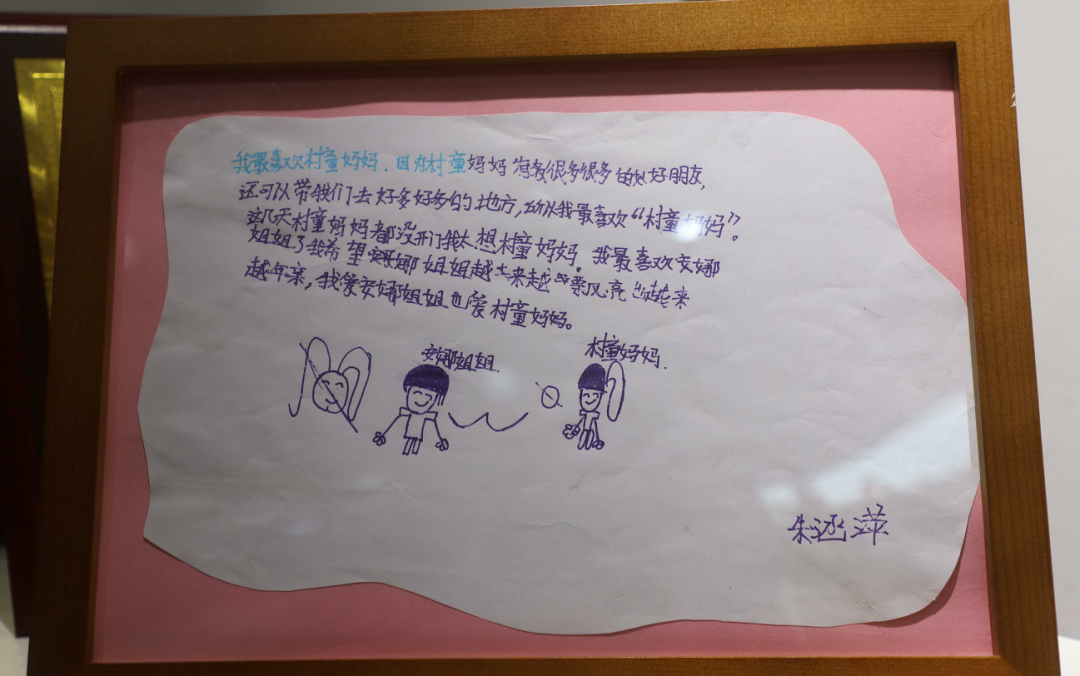 我最喜欢村童妈妈.因为村童妈妈有很多很多的好朋友,
还可以带我们去好多好多的地方,所以我最喜欢“村童妈妈”。
这几天村童妈妈都没开门我太想村童妈妈.我最喜欢安娜
姐姐了我希望安娜姐姐越来越漂亮
越年亲,我爱安娜姐姐也爱村童妈妈。
安娜姐姐.
村童妈妈.
朱